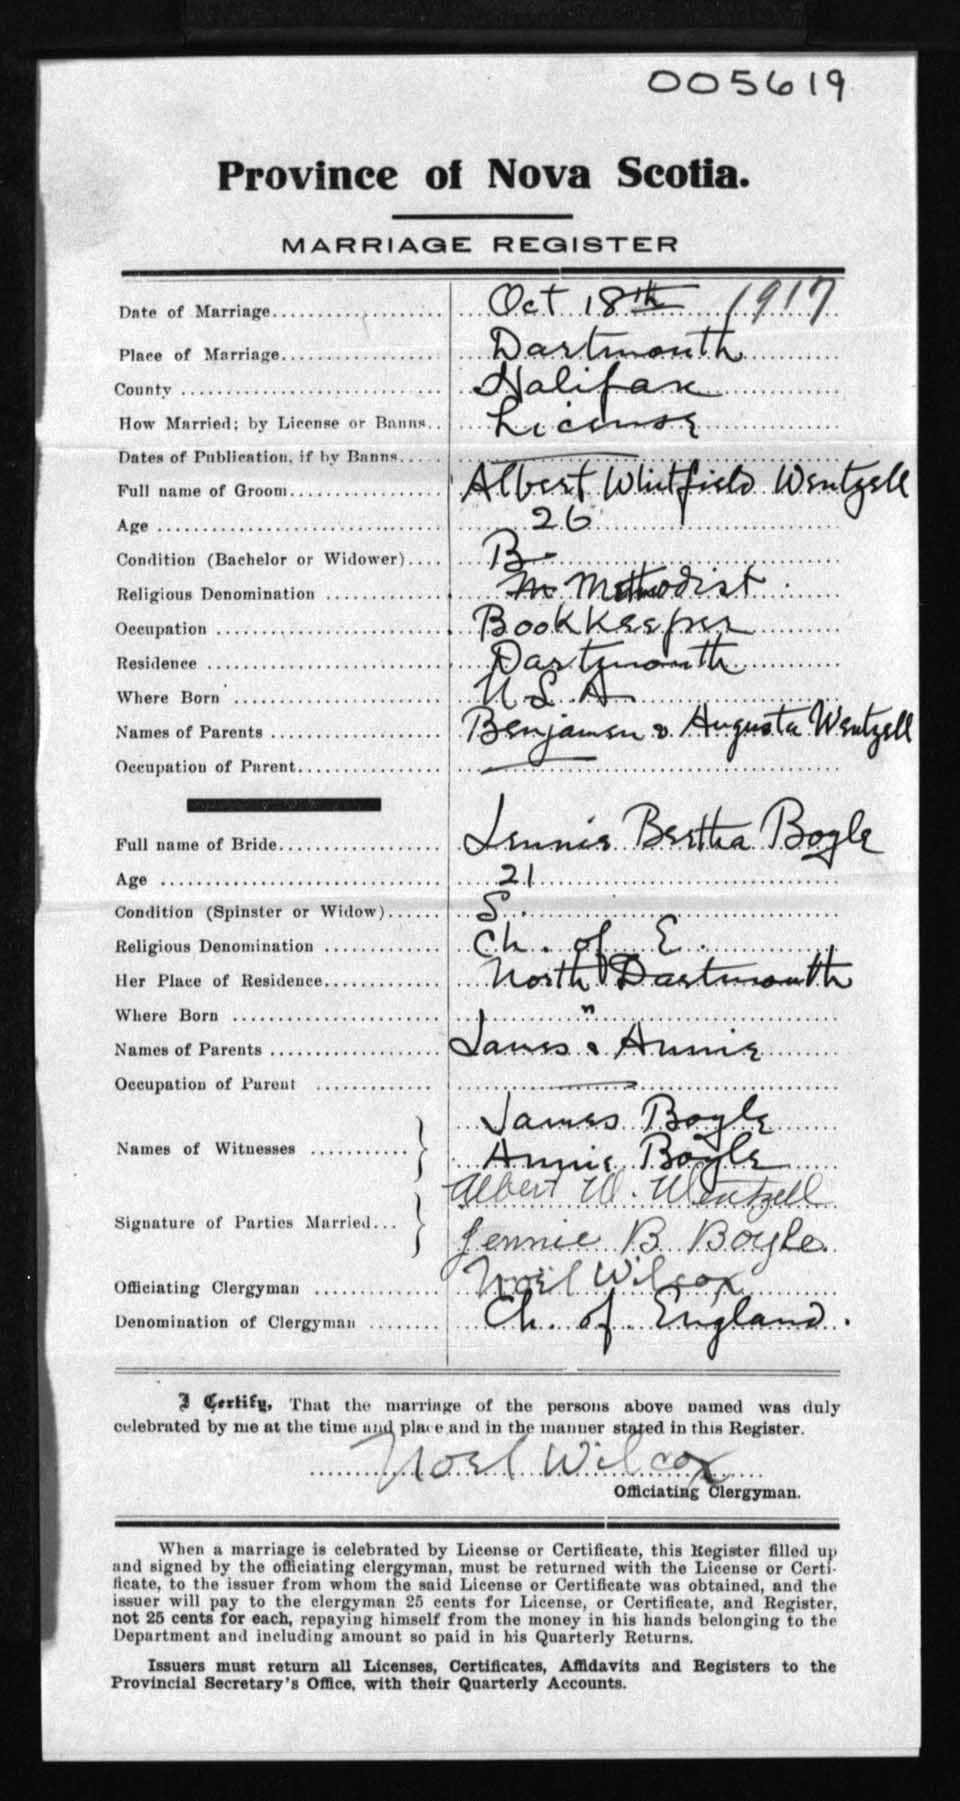 005619
Province of Nova Scotia.
MARRIAGE REGISTER
Date of Marriage.................... Oct 18th 1917
Place of Marriage................... Dartmouth
County .............................. Halifax
How Married; by License or Banns.. License
Dates of Publication, if by Banns..... —
Full name of Groom.................. Albert Whitfield Wentzell
Age ................................. 26
Condition (Bachelor or Widower).... B
Religious Denomination .............. M Methodist
Occupation .......................... Bookkeeper
Residence ........................... Dartmouth
Where Born .......................... U S A
Names of Parents .................... Benjamen & Augusta Wentzell
Occupation of Parent................. —
Full name of Bride................... Jennie Bertha Boyle
Age ................................. 21
Condition (Spinster or Widow)...... S.
Religious Denomination .............. Ch. of E.
Her Place of Residence.............. North Dartmouth
Where Born .......................... "
Names of Parents .................... James & Annie
Occupation of Parent .............. —
James Boyle
Names of Witnesses ............ }
Annie Boyle
Albert W. Wentzell
Signature of Parties Married... }
Jennie B Boyle.
Officiating Clergyman ............... Noel Wilcox
Denomination of Clergyman ........ Ch. of England.
I Certify, That the marriage of the persons above named was duly
celebrated by me at the time and place and in the manner stated in this Register.
Noel Wilcox
Officiating Clergyman.
When a marriage is celebrated by License or Certificate, this Register filled up
and signed by the officiating clergyman, must be returned with the License or Certi-
ficate, to the issuer from whom the said License or Certificate was obtained, and the
issuer will pay to the clergyman 25 cents for License, or Certificate, and Register,
not 25 cents for each, repaying himself from the money in his hands belonging to the
Department and including amount so paid in his Quarterly Returns.
Issuers must return all Licenses, Certificates, Affidavits and Registers to the
Provincial Secretary's Office, with their Quarterly Accounts.